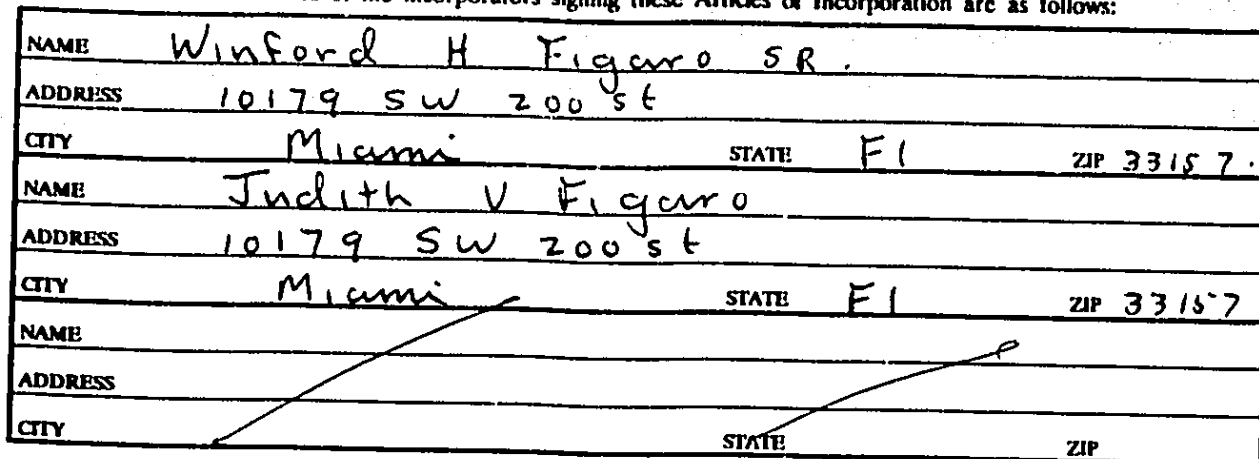 of the incorporators signing these Articles of Incorporation are as follows:
NAME Winford H Figaro SR.
ADDRESS 10179 SW 200 st
CITY Miami STATE Fl ZIP 33157.
NAME Judith V Figaro
ADDRESS 10179 SW 200 st
CITY Miami STATE Fl ZIP 33157
NAME
ADDRESS
CITY STATE ZIP